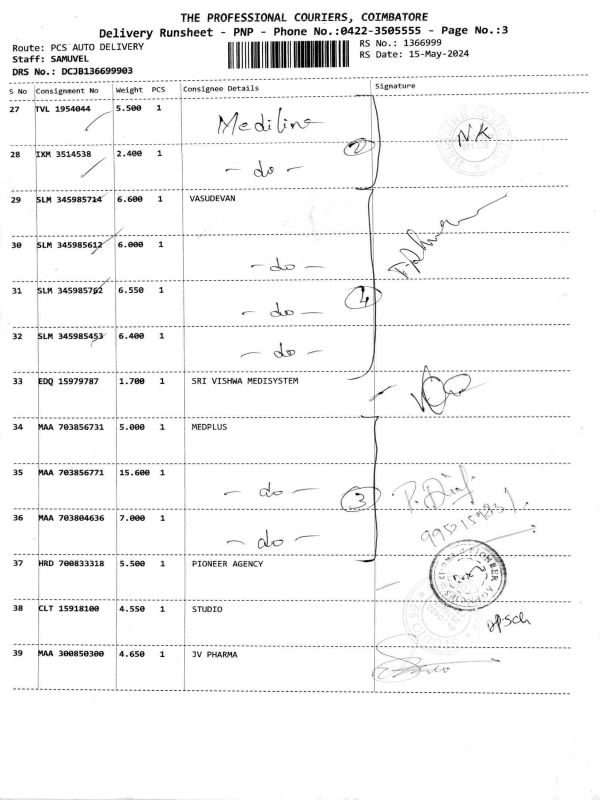 THE PROFESSIONAL COURIERS, COIMBATORE
Delivery Runsheet - PNP - Phone No.:0422-3505555 - Page No.:3
Route: PCS AUTO DELIVERY
RS No.: 1366999
Staff: SAMUVEL
RS Date: 15-May-2024
DRS No.: DCJB136699903
S No Consignment No Weight PCS Consignee Details Signature
27 TVL 1954044 5.500 1 Mediline
N.K
28 IXM 3514538 2.400 1 - do - 2
29 SLM 345985714 6.600 1 VASUDEVAN
30 SLM 345985612 6.000 1 - do -
31 SLM 345985762 6.550 1 - do - 4
32 SLM 345985453 6.400 1 - do -
33 EDQ 15979787 1.700 1 SRI VISHWA MEDISYSTEM
34 MAA 703856731 5.000 1 MEDPLUS
35 MAA 703856771 15.600 1 - do - 3
36 MAA 703804636 7.000 1 - do -
37 HRD 700833318 5.500 1 PIONEER AGENCY
PIONEER AGENCIES
38 CLT 15918100 4.550 1 STUDIO
39 MAA 300850300 4.650 1 JV PHARMA